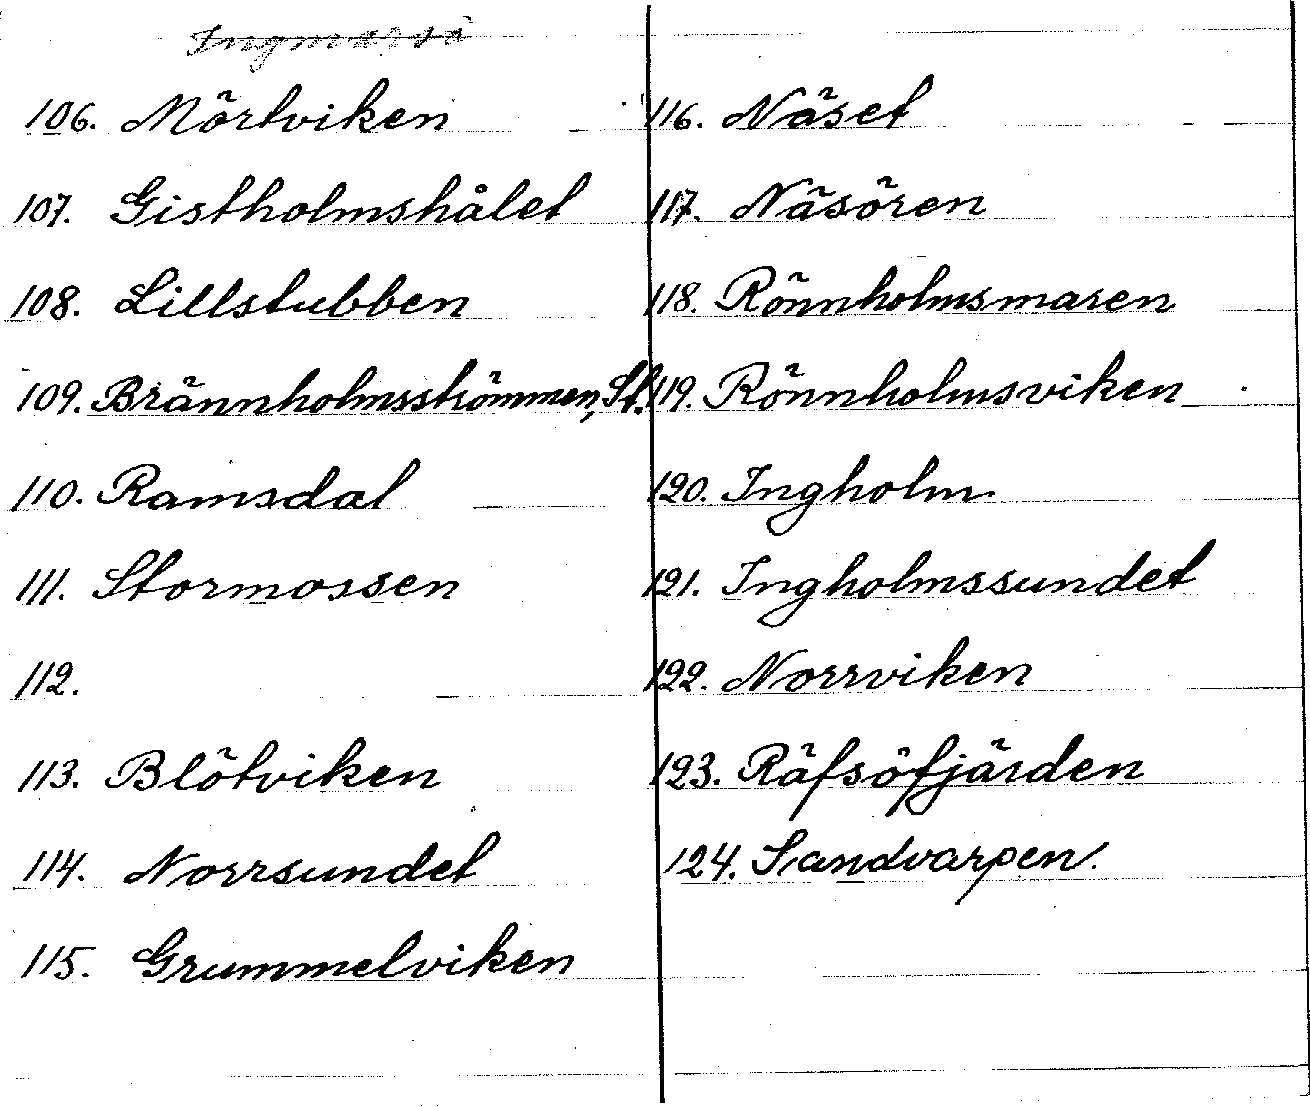 Ingmarsö
106. Mörtviken
107. Gistholmshålet
108. Lillstubben
109. Brännholmsströmmen, St.
110. Ramsdal
111. Stormossen
112.
113. Blötviken
114. Norrsundet
115. Grummelviken
116. Näset
117. Näsören
118. Rönnholmsmaren
119. Rönnholmsviken
120. Ingholm.
121. Ingholmssundet
122. Norrviken
123. Räfsöfjärden
124. Sandvarpen.